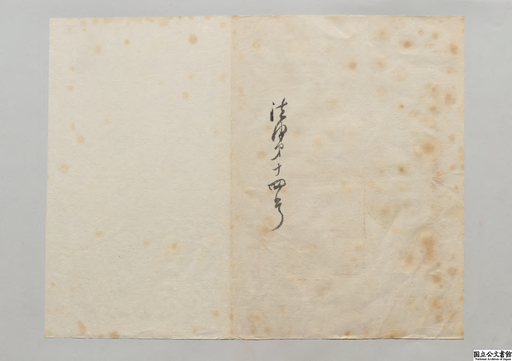 法律第十四号
国立公文書館
National Archives of Japan